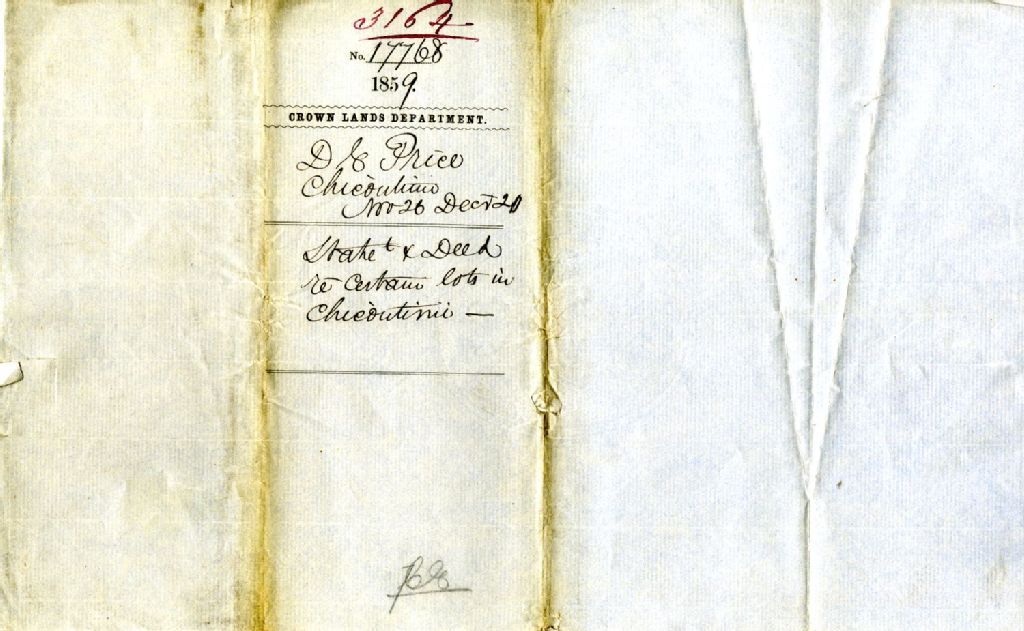 3164
No. 17768
1859.
CROWN LANDS DEPARTMENT.
D E Price
Chicoutimi
Nov 26 Decr 20
Statet & Deed
re certain lots in
Chicoutimi —